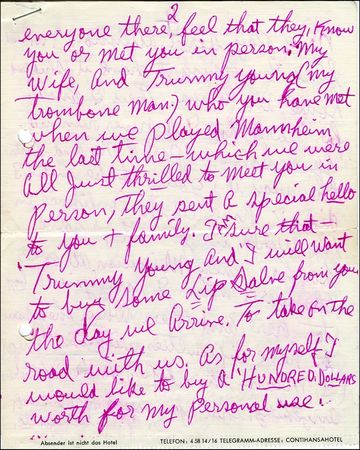 2
everyone there, feel that they, know
you or met you in person. My
Wife, And Trummy young (my
trombone man.) who you have met
when we played Mannheim
the last time – which we were
All Just thrilled to meet you in
Person, They sent A special hello
to you + family. I'm sure that –
Trummy Young and I will want
to buy some Lip Salve from you
the day we Arrive. To take on the
road with us. As for myself, I
would like to buy a 'HUNDRED DOLLARS
worth for my personal use.
Absender ist nicht das Hotel TELEFON: 4 58 14/16 TELEGRAMM-ADRESSE: CONTIHANSAHOTEL